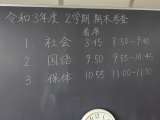 令和3年度 2学期 期末考査
着席
1 社会 8:45 8:50-9:40
2 国語 9:50 9:55-10:45
3 保体 10:55 11:00-11:50